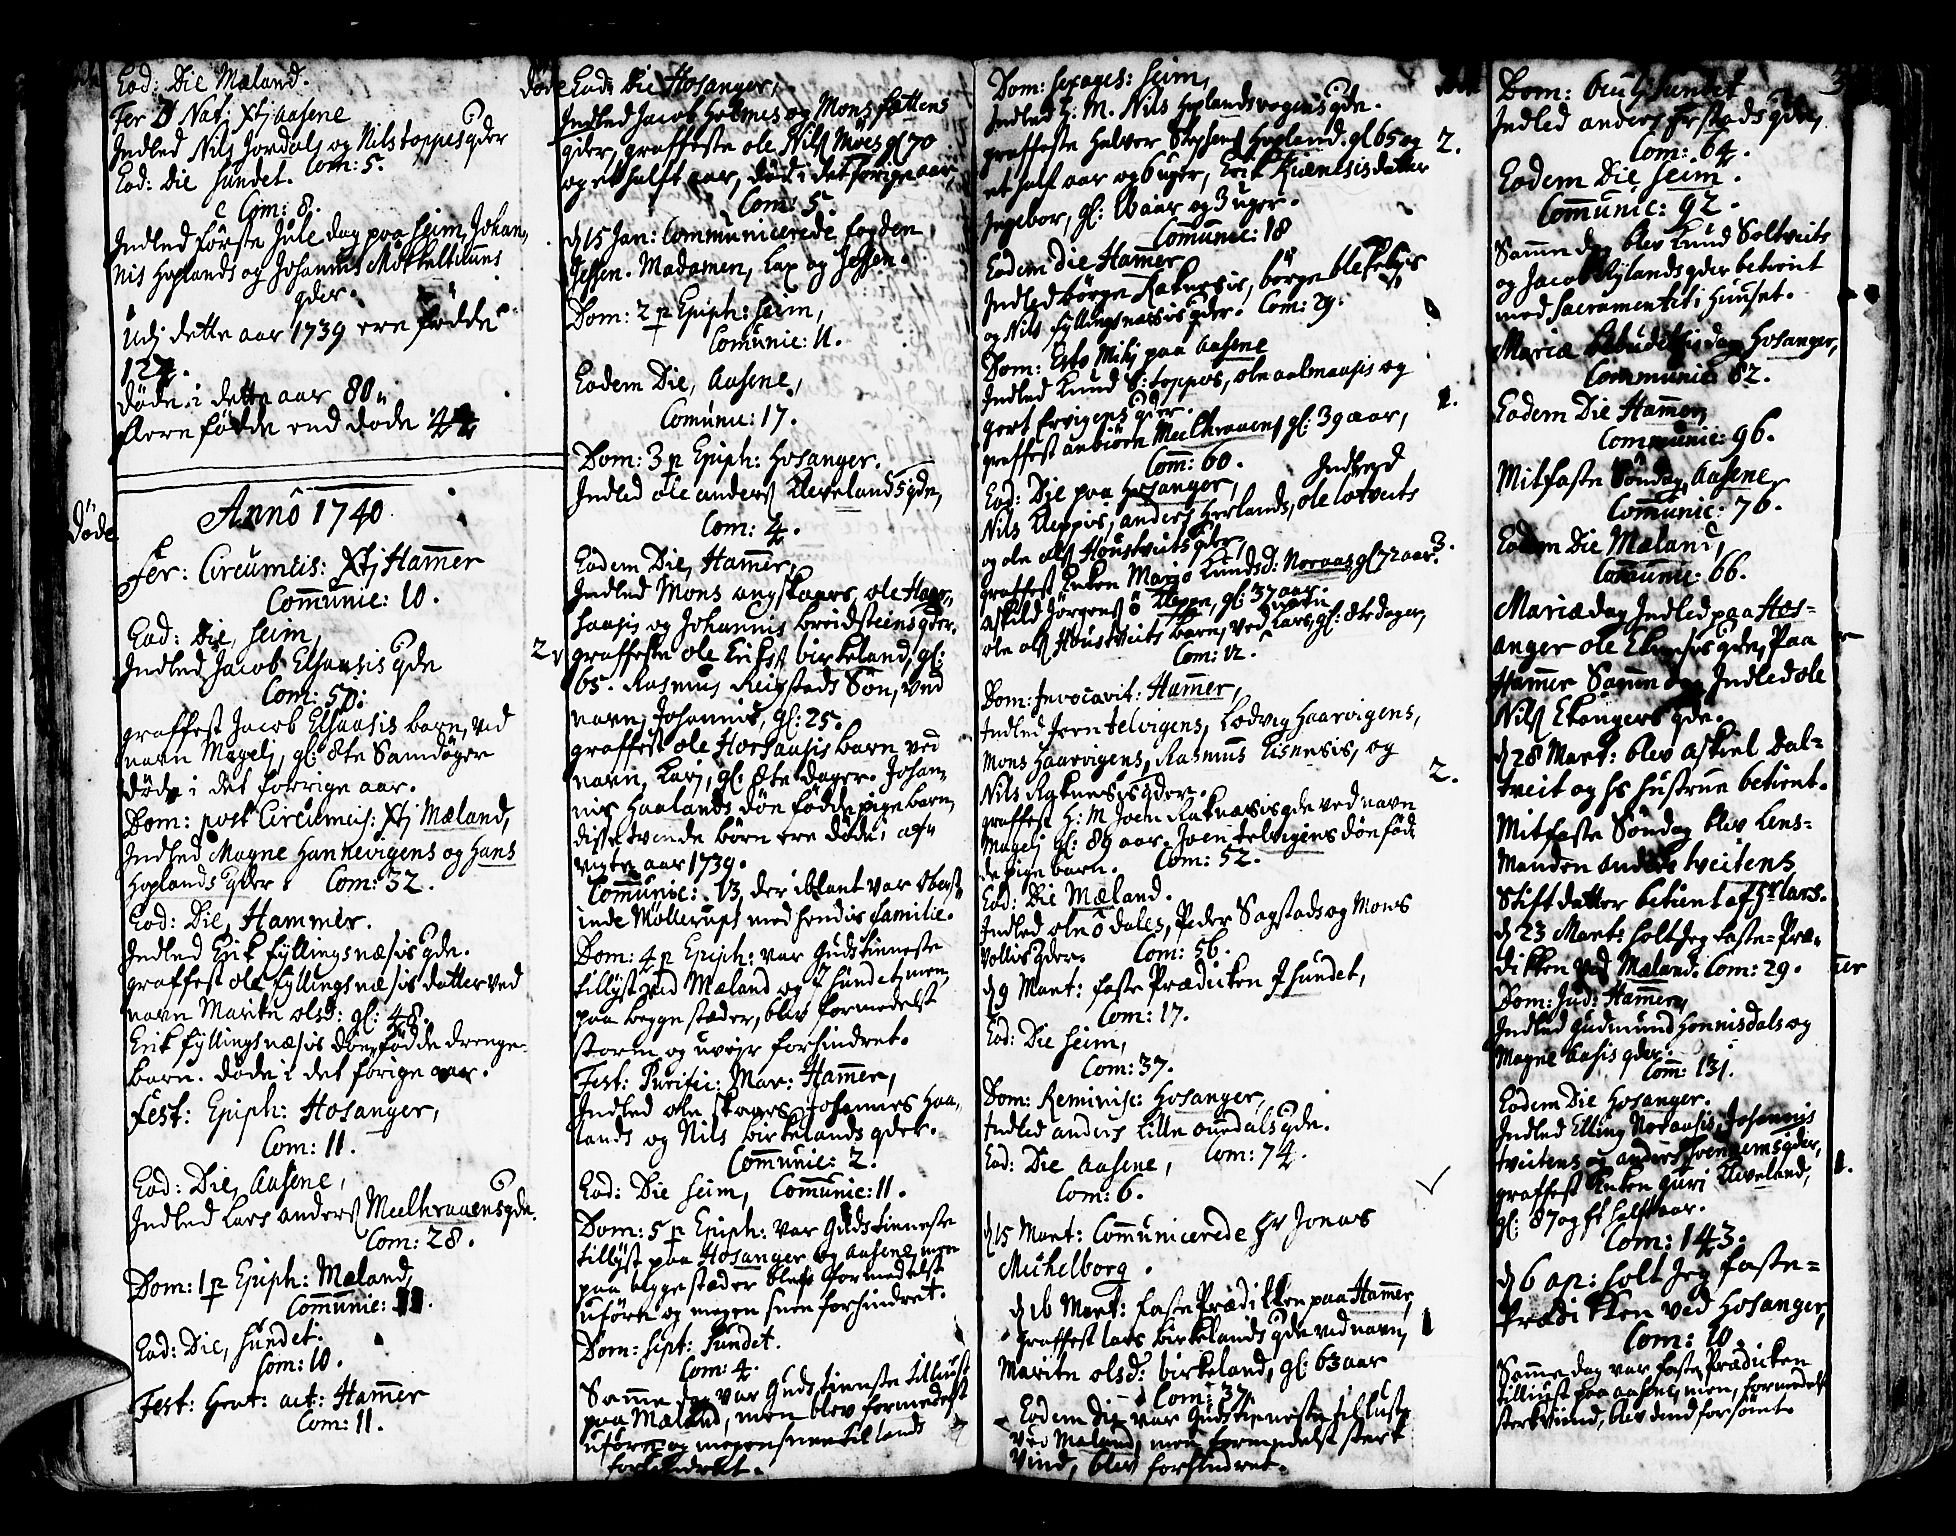 Eod: Die Mæland.
Fer 2 Nat: Xtj Aasene
Indled Nils Jordals og Nils toppes qder
Eod: Die Sundet. Com: 5.
Com: 8.
Indled første Jule dag paa Seim, Johan-
nis Hoplands og Johannis Mökeltuuns
qder.
Udj dette aar 1739 ere fødde
124.
døde i dette aar 80
flere födde end døde 44
Døde
Anno 1740
Fer: Circumcis: Xtj Hammer
Communic: 10.
Eod: Die, Seim,
Indled Jacob Elsaasis qde
Com: 50:
graffest Jacob Elsaasis barn, ved
navn Mageli, gl: 8te Samdöger
døde i det forrige aar.
Dom: post Circumcis: Xtj Mæland,
Indled Magne Hannevigens og Hans
Hoplands qder. Com: 32.
Eod: Die, Hammer.
Indled Erik fyllingsnæsis qde.
graffest ole fyllingsnæsis datter ved
navn Marite olsd: gl: 48.
Erik fyllingsnæsis dön födde drenge-
barn. døde i det forige aar.
Fest: Epiph: Hosanger,
Com: 11.
Eod: Die, Aasene,
Indled Lars anders Meelhrauens qde.
Com: 28.
Dom: 1 p Epiph: Mæland,
Communic: 11.
Eod: Die, Sundet.
Com: 10.
Fest: Hammer
Com: 11.
Døde
Eod: Die Hosanger,
Indled Jacob Holmes og Mons fattens
qder, graffeste ole Nils Möes gl 70
og et halft aar, död i det forige aar,
Com: 5.
d 15 Jan: Communicerede fogden
Jessen. Madamen, Lax og Jessen.
Dom: 2 p Epiph: Seim,
Communic: 11.
Eodem Die, Aasene,
Comunic: 17.
Dom: 3 p Epiph: Hosanger.
Indled ole anders Clevelands qde,
Com: 4.
Eodem Die, Hammer,
Indled Mons angskaars, ole Hop-
saasis og Johannis breidsteens qder.
2
graffeste ole Eriks birkeland, gl:
65. Rasmus Reigstads Sön, ved
navn, Johannis, gl: 25.
graffest ole Horsaasis barn ved
navn, Karj, gl: 8te dager. Johan-
nis Haalands dön fødde pigebarn,
disse tvende börn ere döde i af-
vigte aar 1739.
Communic: 13, der iblant var oberst-
inde Möllerups med hendis familie.
Dom: 4 p Epiph: var Guds tieneste
tillyst ved Mæland og J Sundet, men
paa begge stæder, blev formedelst
storm og uvejr forhindret.
Fest: Purific: Mar: Hammer,
Indled ole skaars, Johannes Haa-
lands og Nils birkelands qder.
Communic: 2.
Eod: Die Seim, Communic: 11.
Dom: 5 p Epiph: var Guds tieneste
tillyst paa Hosanger og Aasene, men
paa begge stæder blef formedelst
uföre og megen snee forhindret.
Dom: Sept: Sundet.
Com: 4.
Samme dag var Guds tieneste tilliust
paa Mæland, men blev formedelst
uföre og megen snee til lands
forhindret.
Dom: Sexages: Seim,
Indled H: M. Nils Hoplandsvogens qde.
graffeste Halvor Stephens Hopland. gl 65 og
2.
et half aar og 6 uger, Erik datter
Ingebor, gl: aar og 3 uger.
Communic: 18
Eodem Die Hammer
Indled börge Raknesis, börge blekelys
og Nils fyllingsnæsis qder. Com: 29.
Dom: Esto Mihj paa Aasene
Indled Knud S: toppes, ole aalmaasis og
gert qder.
1.
graffest anbiörn Meelhrauens gl: 39 aar,
Com: 60.
Eod: Die paa Hosanger, Indled
Nils Kleppis, anders Herlands, ole lotveits
og ole ols Houstveits qder,
graffest Enken Marjo Knudsd: Noraas gl 72 aar.
3.
askild Jörgens ö Kleppe, gl: 37 aar.
ole ols Houstveits barn, ved navn Lars, gl: 8te dager,
Com: 12.
Dom: Invocavit: Hammer,
Indled Joen telvigens, Lodvig Haarvigens,
Mons Haarvigens, Rasmus Eisnesis, og
Nils Raknesis qder.
2.
graffest H: M Joen Raknæsis qde ved navn
Mageli gl: 89 aar. Joen telvigens dön fød-
de pige barn. Com: 52.
Eod: Die Mæland.
Indled ole ö dales, Peder Sagstads og Mons
Vollis qder. Com: 56.
d 9 Mart: faste Prædicken J Sundet,
Com: 17.
Eod: Die Seim,
Com: 37.
Dom: Reminisc: Hosanger,
Indled anders Lille ouredals qde.
Com: 74.
Eod: Die Aasene,
Com: 6.
d 15 Mart: Communicerede Hr Jonas
Michelborg.
d 16 Mart: faste Prædikken paa Hammer,
graffest lars birkelands qde ved navn,
1
Marite olsd: birkeland, gl: 63 aar
Com: 37.
Eodem Die var Guds tieneste tilliust
ved Mæland, men formedelst stærk
Vind, blev forhindret.
3
Dom: Oculj Sundet
Indled anders Erstads qde,
Com: 64.
Eodem Die Seim.
Communic: 92.
Samme dag blev Knud Soltveits
og Jacob Rylands qder betient
med Sacramentet i Huuset.
Mariæ bebudelsis dag Hosanger,
Communic: 82.
Eodem Die Hammer,
Communic: 96.
Mitfaste Söndag, Aasene,
Communic: 76.
Eodem Die Mæland,
Communic: 66.
Mariæ dag Indled paa Hos-
anger ole qde, Paa
Hammer Samme dag Indled ole
Nils Ekangers qde.
d 28 Mart: blev askiel dal-
tveit og hs Hustrue betient.
Mitfaste Söndag blev Lens-
manden anders tveitens
Stifdatter betient af Hr Lars.
d 23 Mart: holt Jeg faste-Præ-
dikken ved Mæland. Com: 29.
Dom: Jud: Hammer,
Indled Gudmund Honnisdals og
Magne Aasis qder.
Com: 131.
Eodem Die Hosanger.
Indled Elling Noraasis, Johannis
tveitens og anders qder,
1.
graffest Enken Guri Kleveland,
gl: 87 og et halft aar.
Com: 143.
d 6 ap: holt Jeg faste-
Prædikken ved Hosanger,
Com: 10.
Samme dag var faste Prædicken
tilliust paa Aasene, men, formedelst
sterk Vind, blev dend forsömt.